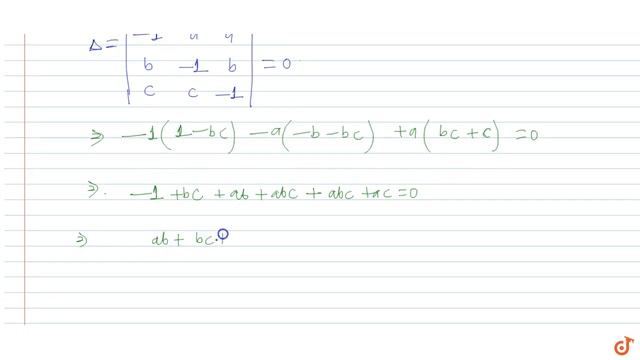 Δ = | -1 a a |
| b -1 b | = 0
| c c -1 |
⇒ -1(1-bc) -a(-b-bc) +a(bc+c) = 0
⇒. -1 +bc +ab +abc + abc +ac = 0
⇒ ab + bc +